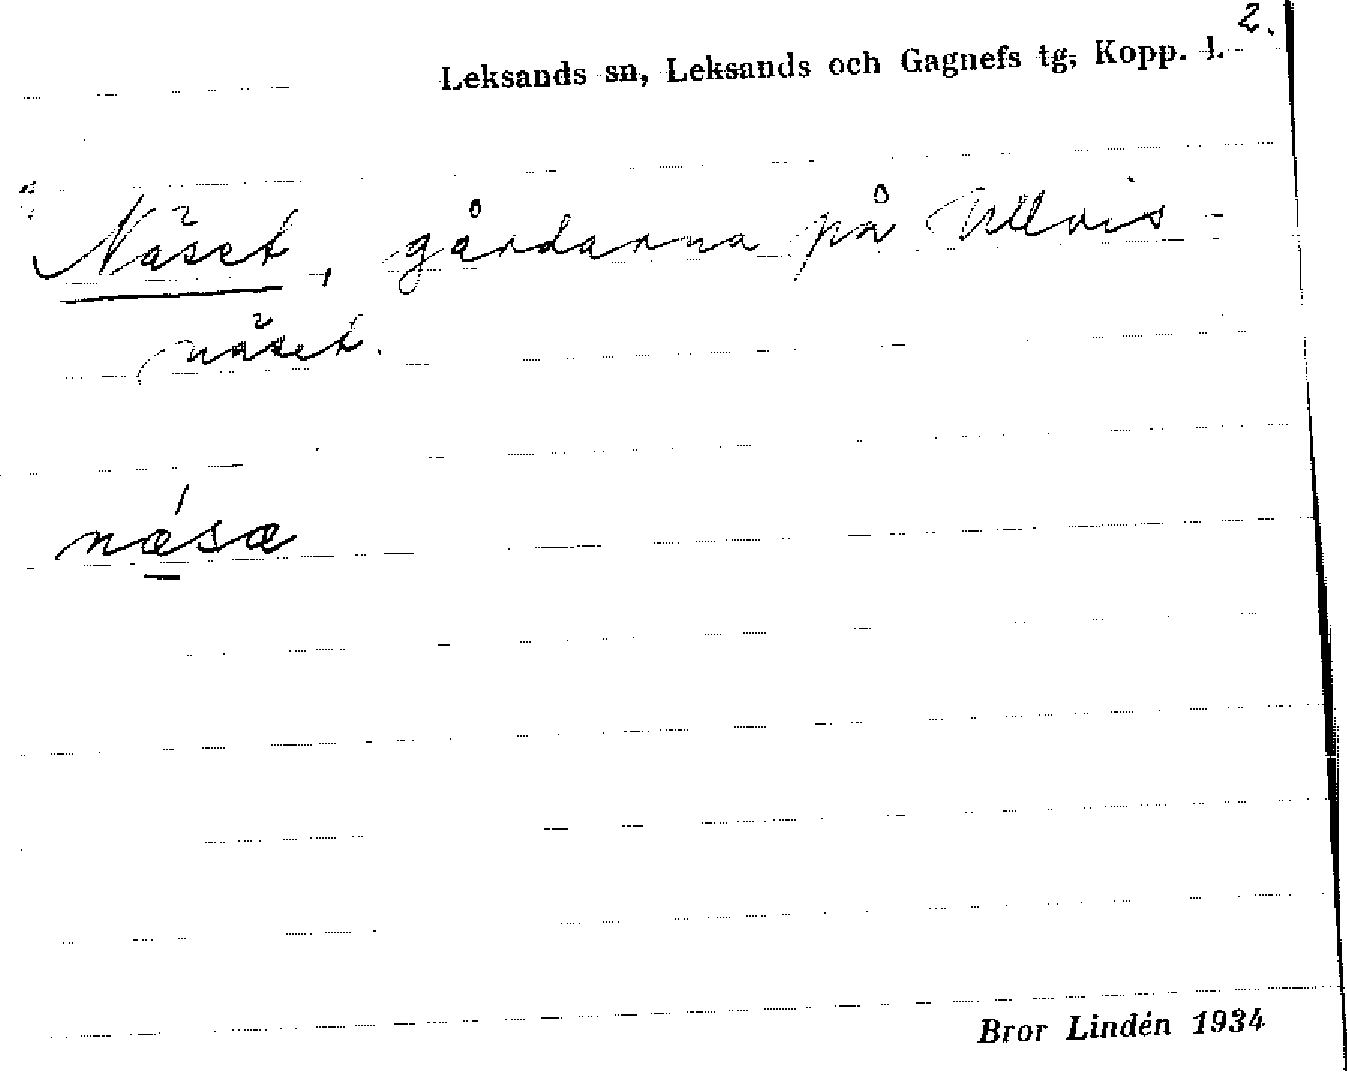 2.
Leksands sn, Leksands och Gagnefs tg, Kopp. l.
Näset, gårdarna på Ullvis-
näset.
næ´sæ
Bror Lindén 1934